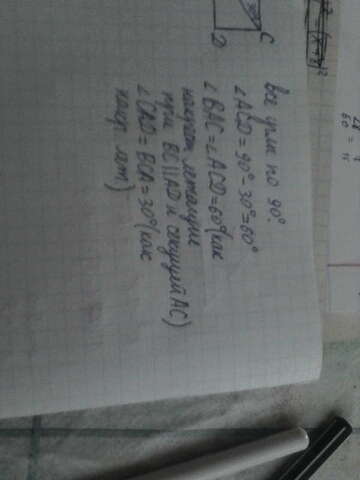 C
D
все углы по 90°.
∠ACD = 90° - 30° = 60°
∠BAC = ∠ACD = 60° (как
накрест лежащие
при BC || AD и секущей AC)
∠CAD = BCA = 30° (как
накр. леж)